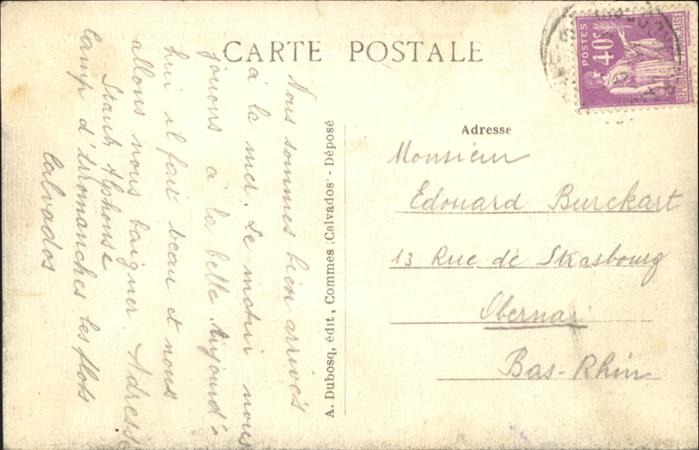 CARTE POSTALE
Nous sommes bien arrivés
à la mer. Le matin nous
jouons à la belle. Aujourd'
hui il fait beau et nous
allons nous baigner. Adresse
Staub Alphonse
Camp d'Arromanches les flots
Calvados
A. Dubosq, édit, Commes (Calvados - Déposé
Adresse
Monsieur
Edouard Burckart
13 Rue de Strasbourg
Obernai
Bas-Rhin
POSTES
40c